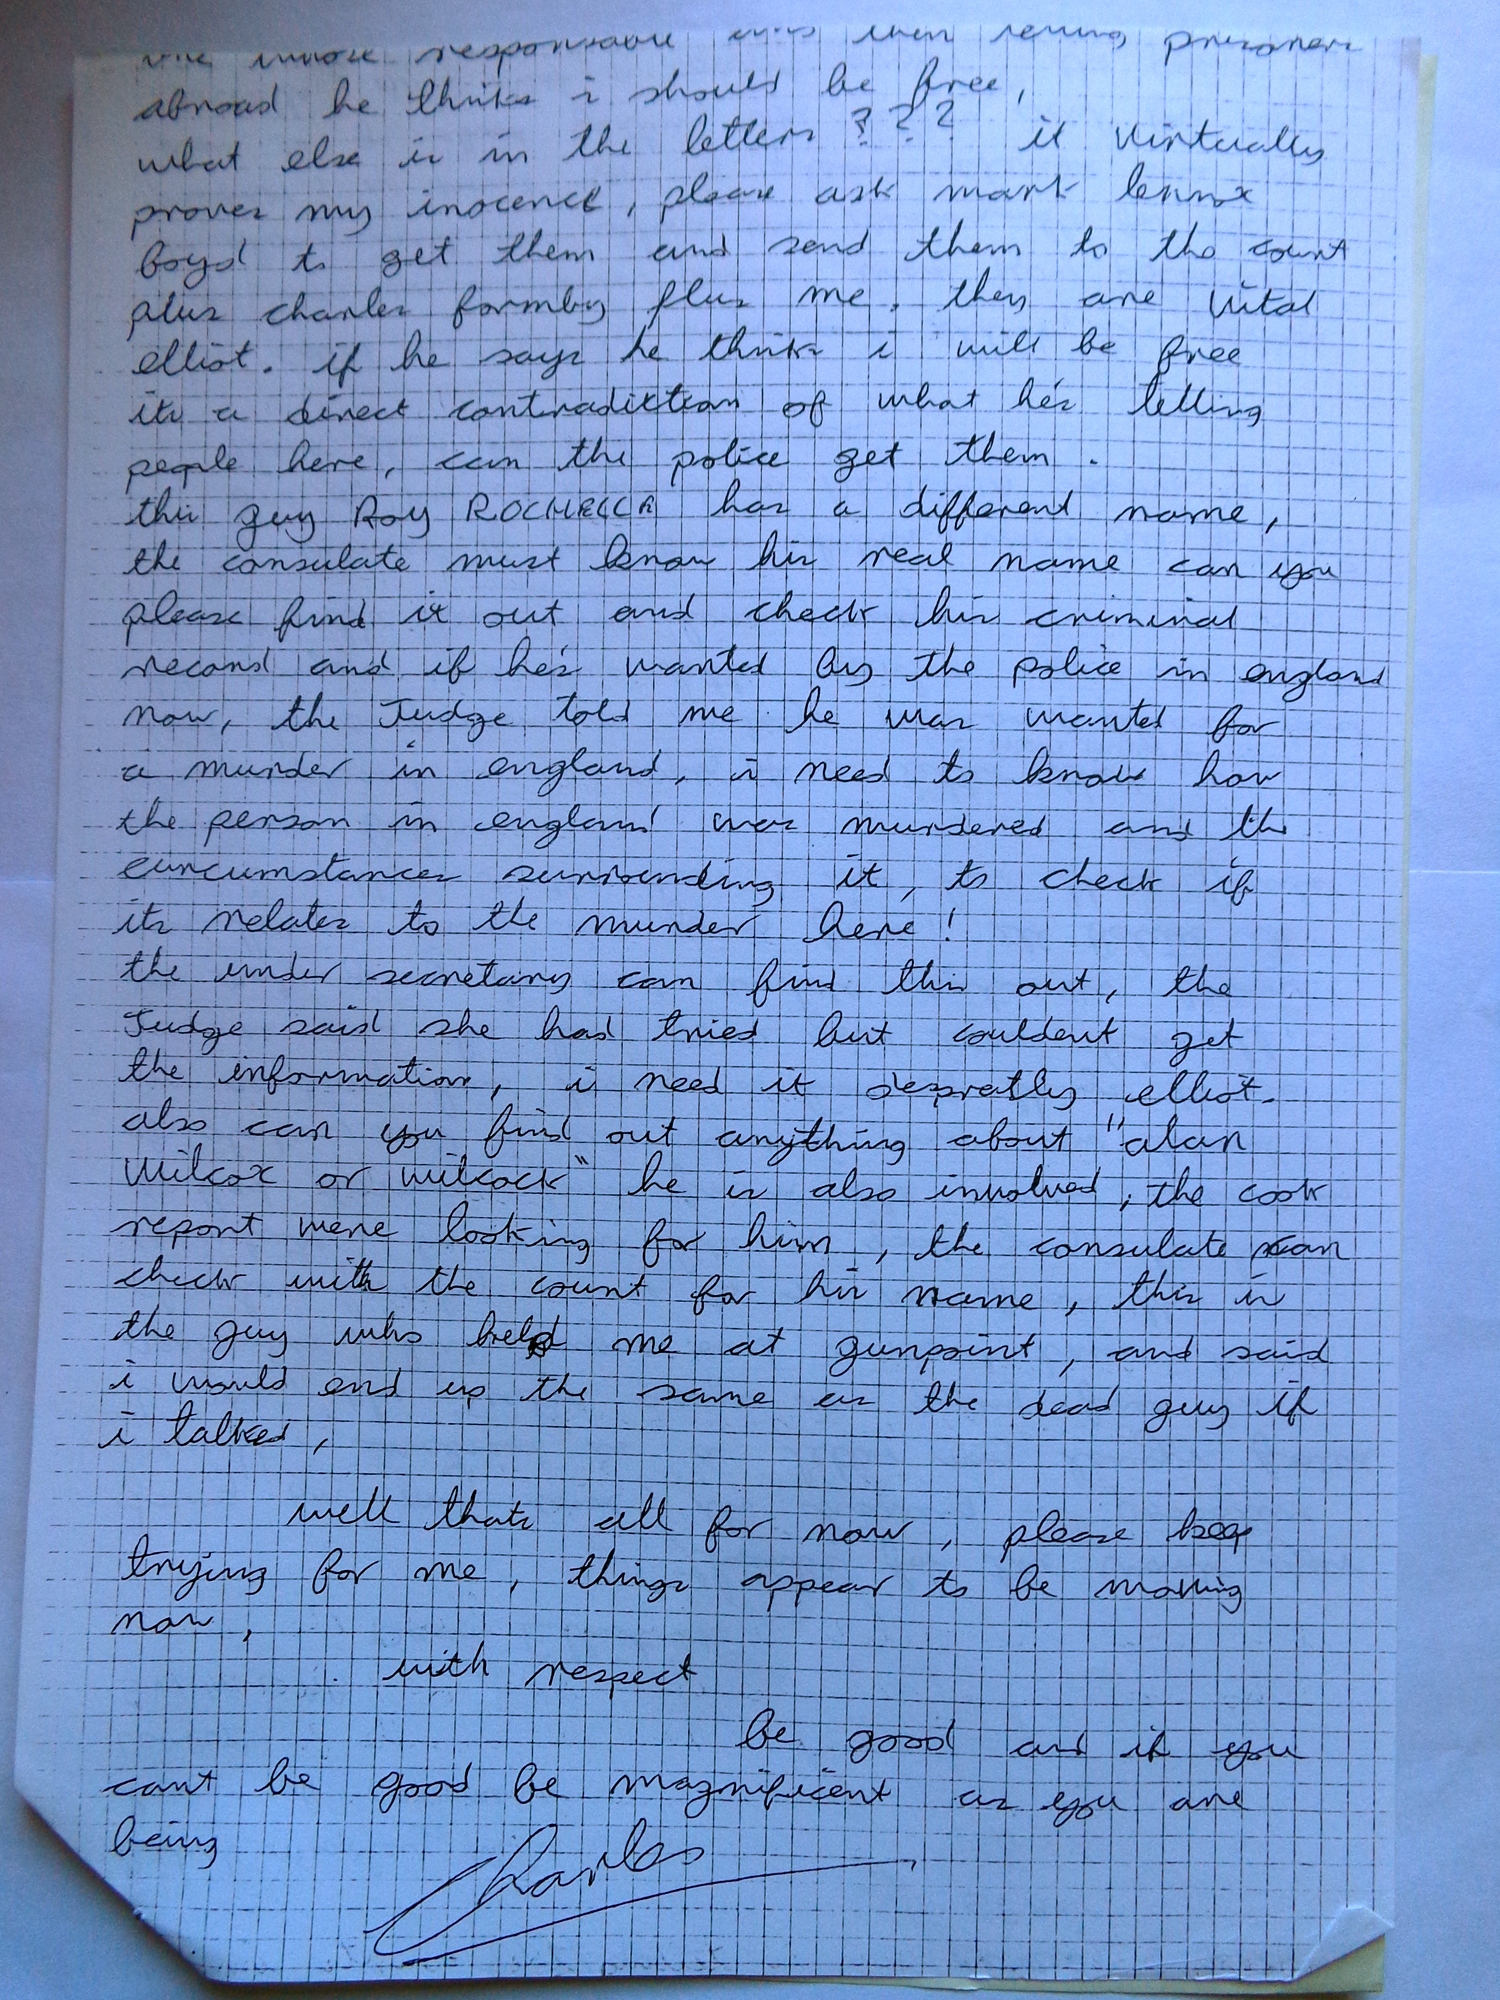 responsable
prisoners
abroad he thinks i should be free,
what else is in the letters ??? it virtually
proves my inocence, please ask mark lennox
boyd to get them and send them to the court
plus charles formby plus me. they are vital
elliot. if he says he thinks i will be free
its a direct contradiction of what he's telling
people here, can the police get them.
this guy Roy ROCHELLA has a different name,
the consulate must know his real name can you
please find it out and check his criminal
record and if he's wanted by the police in england
now, the Judge told me he was wanted for
a murder in england, i need to know how
the person in england was murdered and the
curcumstances surrounding it, to check if
its relates to the murder here!
the under secretary can find this out, the
Judge said she had tried but couldent get
the information, i need it despratly elliot.
also can you find out anything about "alan
wilcox or wilcock" he is also involved, the cook
report were looking for him, the consulate can
check with the court for his name, this is
the guy who held me at gunpoint, and said
i would end up the same as the dead guy if
i talked,
well thats all for now, please keep
trying for me, things appear to be moving
now,
with respect
be good and if you
cant be good be magnificent as you are
being
Charles